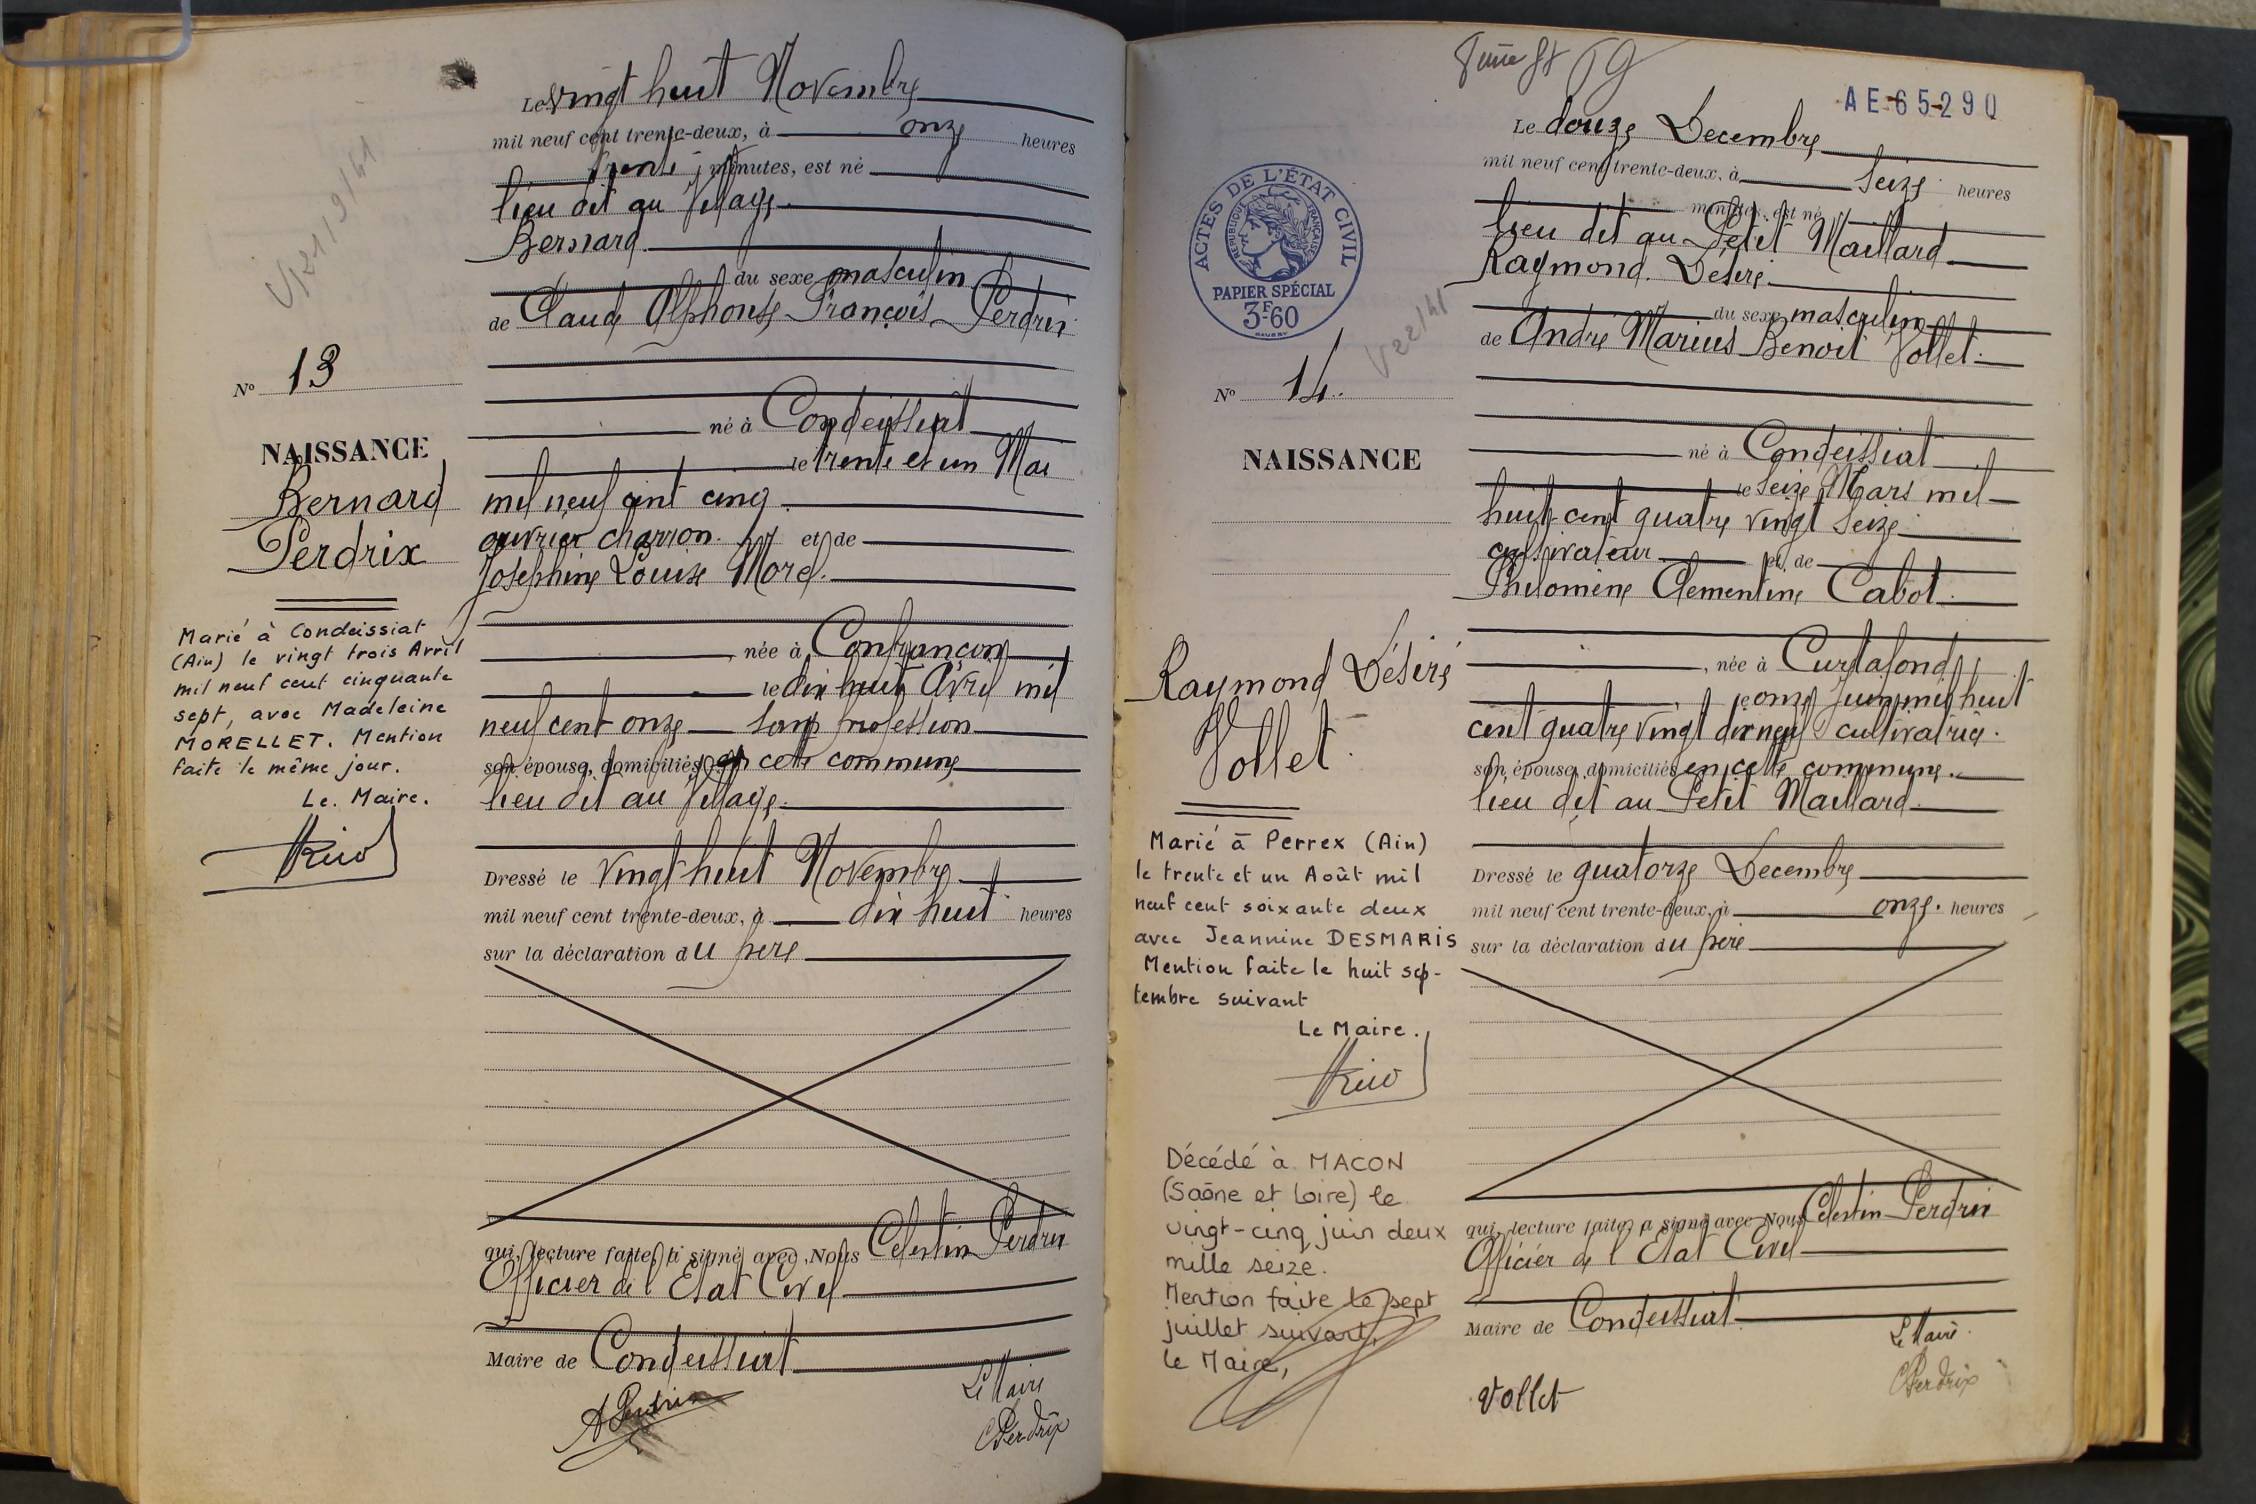 Le vingt huit Novembre
mil neuf cent trente-deux, à onze heures
trente minutes, est né
lieu dit au Village
Bernard
du sexe masculin
de Claude Alphonse François Perdrix
N° 13
né à Condeissiat
NAISSANCE
le trente et un Mai
Bernard
mil neuf cent cinq
Perdrix
ouvrier charron et de
Josephine Louise Morel.
Marié à Condeissiat
(Ain) le vingt trois Avril
mil neuf cent cinquante
sept, avec Madeleine
MORELLET. Mention
faite le même jour.
Le Maire.
née à Confrançon
le dix huit Avril mil
neuf cent onze sans profession
son épouse, domiciliés en cette commune
lieu dit au Village.
Dressé le vingt huit Novembre
mil neuf cent trente-deux, à dix huit heures
sur la déclaration du père
qui, lecture faite, a signé avec Nous Celestin Perdrix
Officier de l'Etat Civil
Maire de Condeissiat
A Perdrix
Le Maire
C Perdrix
AE-65290
Le douze Decembre
mil neuf cent trente-deux, à seize heures
minutes, est né
lieu dit au Petit Maillard
Raymond Désiré
du sexe masculin
de André Marius Benoit Vollet
ACTES DE L'ÉTAT CIVIL
RÉPUBLIQUE FRANÇAISE
PAPIER SPÉCIAL
3F60
N° 14.
né à Condeissiat
NAISSANCE
le seize Mars mil
huit cent quatre vingt seize
cultivateur et de
Philomène Clementine Cabot
Raymond Désiré
Vollet
née à Curtafond
le onze Juin mil huit
cent quatre vingt dix neuf cultivatrice.
son épouse, domiciliés en cette commune.
lieu dit au Petit Maillard
Marié à Perrex (Ain)
le trente et un Août mil
neuf cent soixante deux
avec Jeannine DESMARIS
Mention faite le huit sep-
tembre suivant
Le Maire.
Dressé le quatorze Decembre
mil neuf cent trente-deux, à onze. heures
sur la déclaration du père
Décédé à MACON
(Saône et Loire) le
vingt-cinq juin deux
mille seize.
Mention faite le sept
juillet suivant,
le Maire,
qui, lecture faite, a signé avec Nous Celestin Perdrix
Officier de l'Etat Civil
Maire de Condeissiat
Le Maire
Vollet
C Perdrix